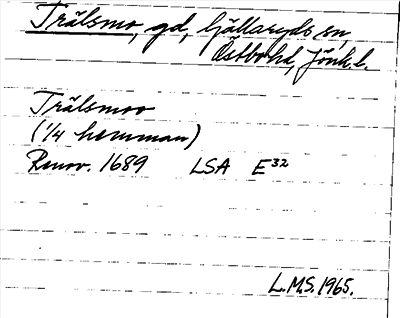 Trälsmo, gd, Ljällaryds sn,
Östbohd, Jönk.l.
Trälsmoo
(1/4 hemman)
Renov. 1689 LSA E32
L.M.S. 1965.